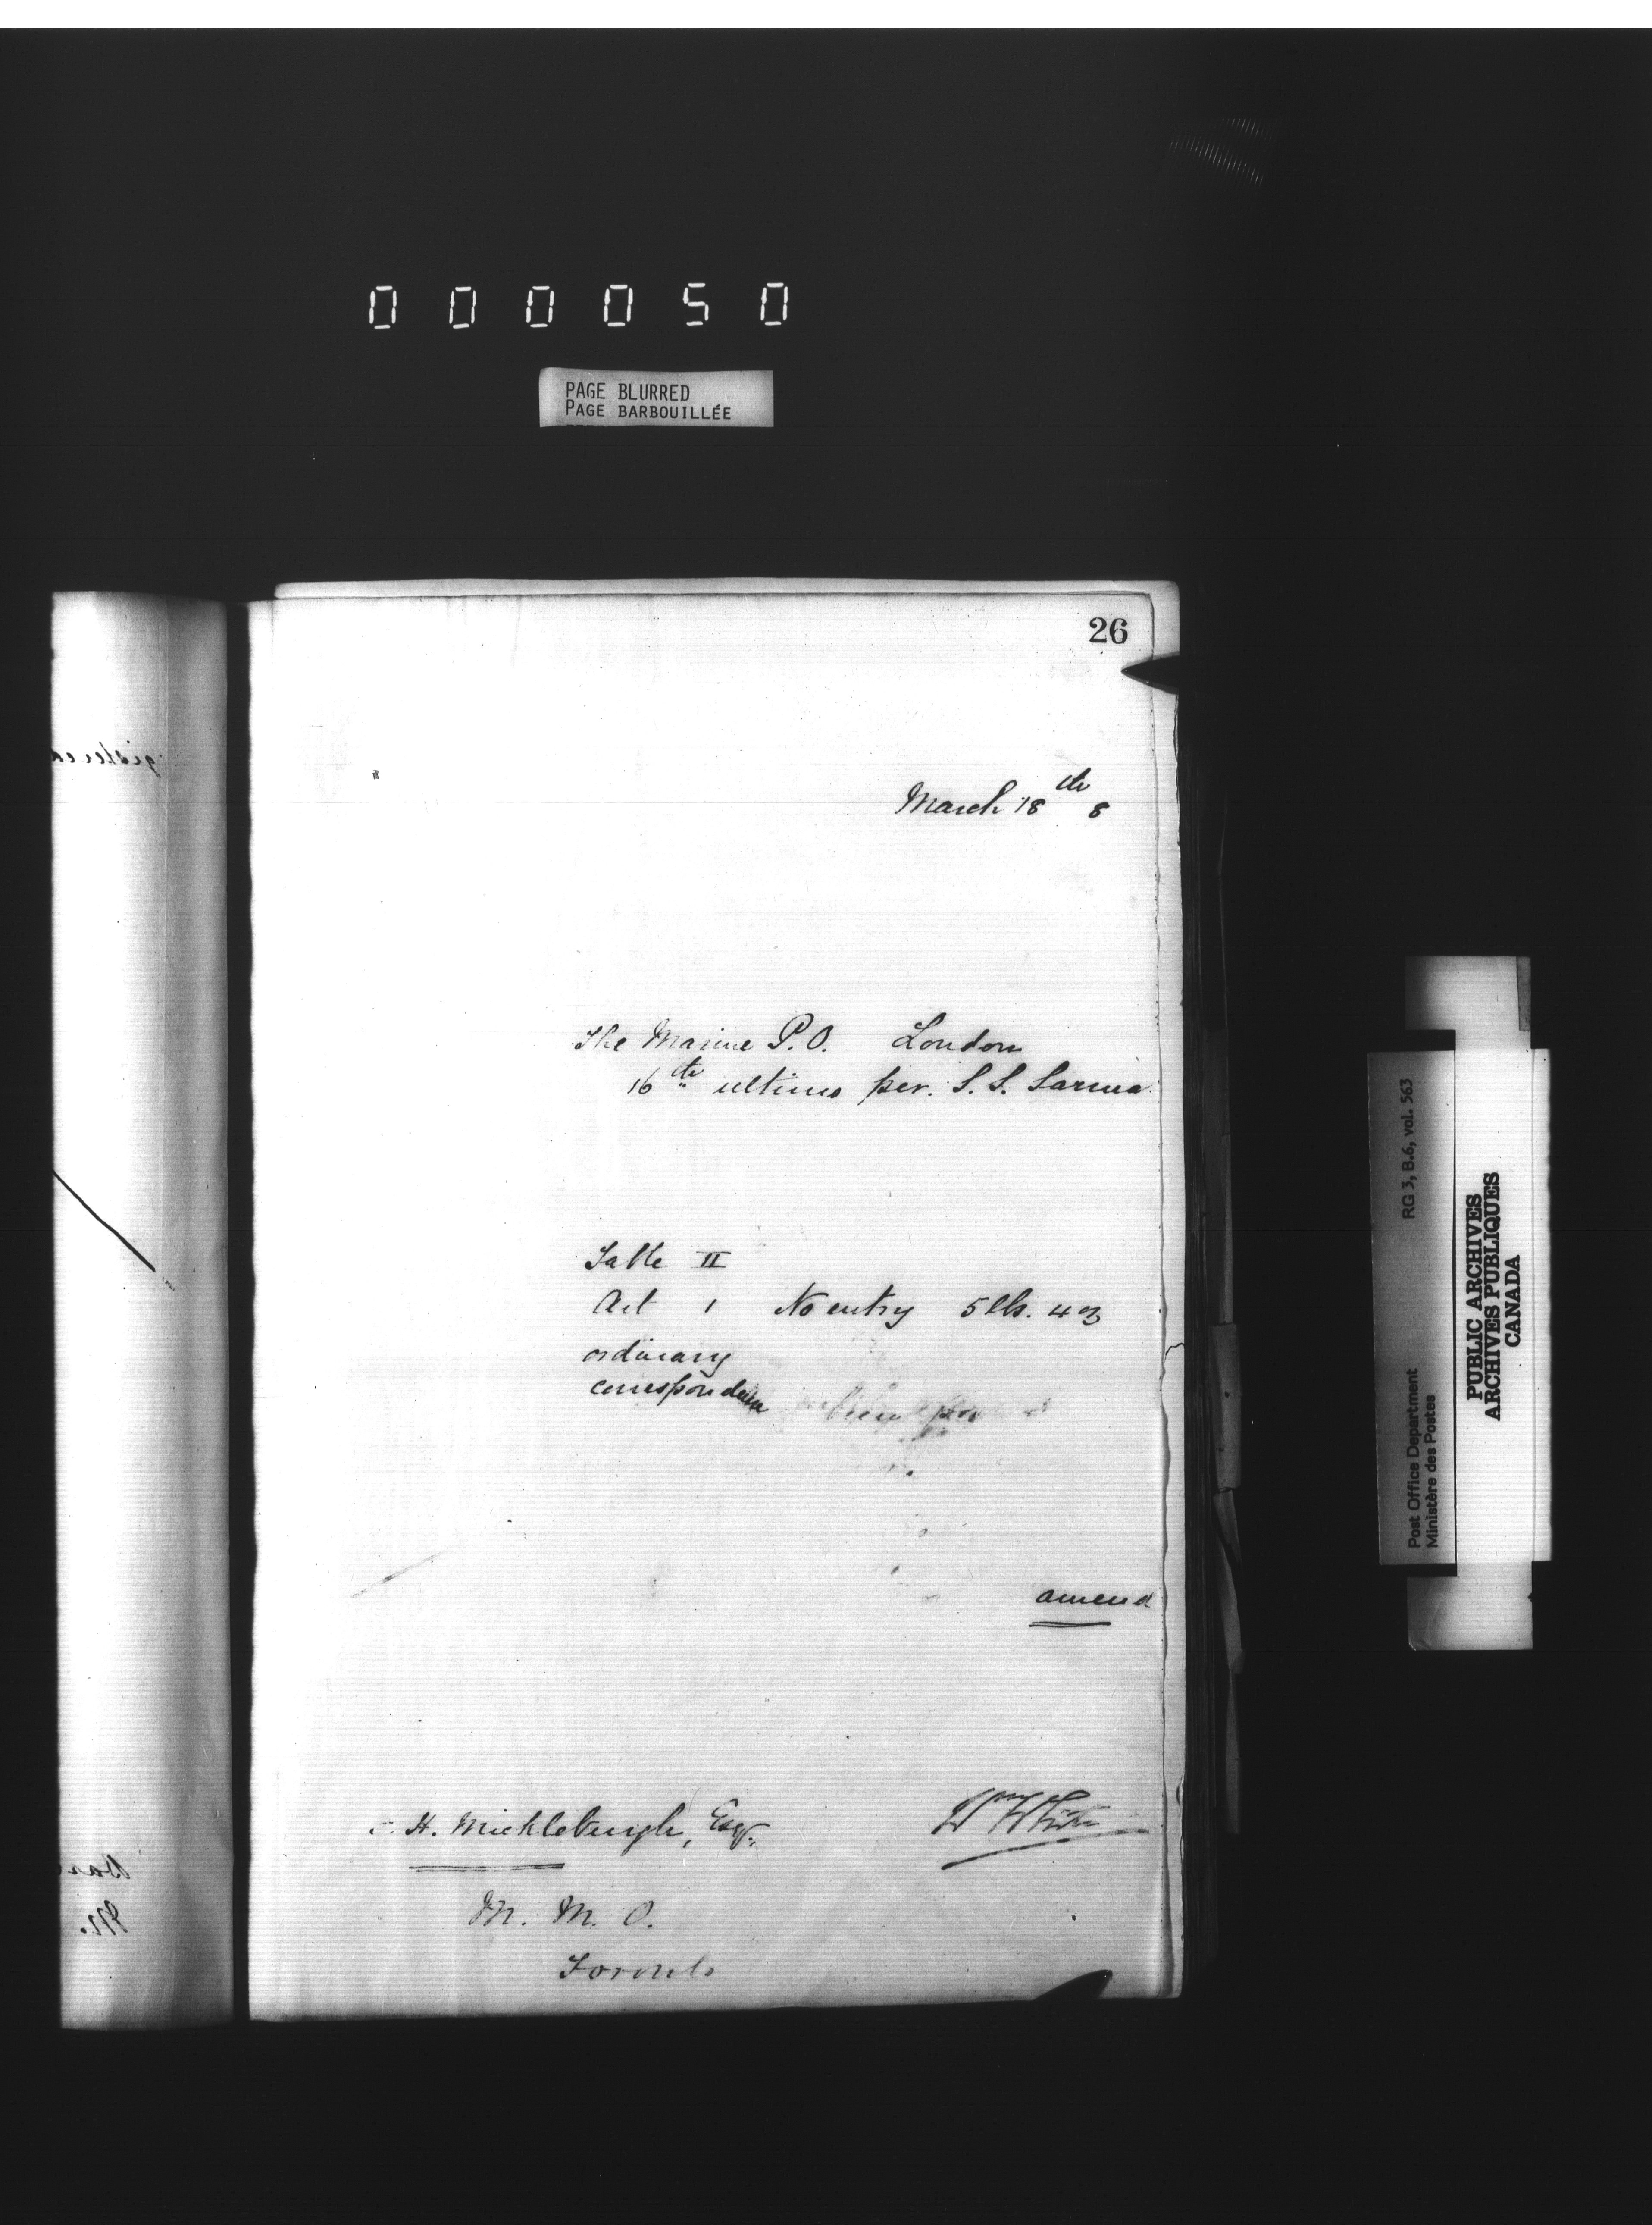 000050
PAGE BLURRED
PAGE BARBOUILLÉE
26
March 18th 8
The Marine P.O. London
16th ultimo per. S. S. Sarnia
Table II
Art 1 No entry 5 lbs. 4 oz
ordinary
correspondence
amend
H. Mickleburgh, Esq.
Wm White
M. M. O.
Toronto
gistered
RG 3, B.6, vol. 563
Post Office Department
Ministère des Postes
PUBLIC ARCHIVES
ARCHIVES PUBLIQUES
CANADA